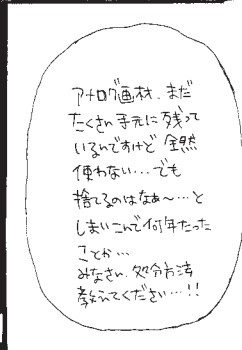 アナログ画材、まだ
たくさん手元に残って
いるんですけど全然
使わない…でも
捨てるのはなぁ〜…と
しまいこんで何年たった
ことか…
みなさい、処分方法
教えてください…!!